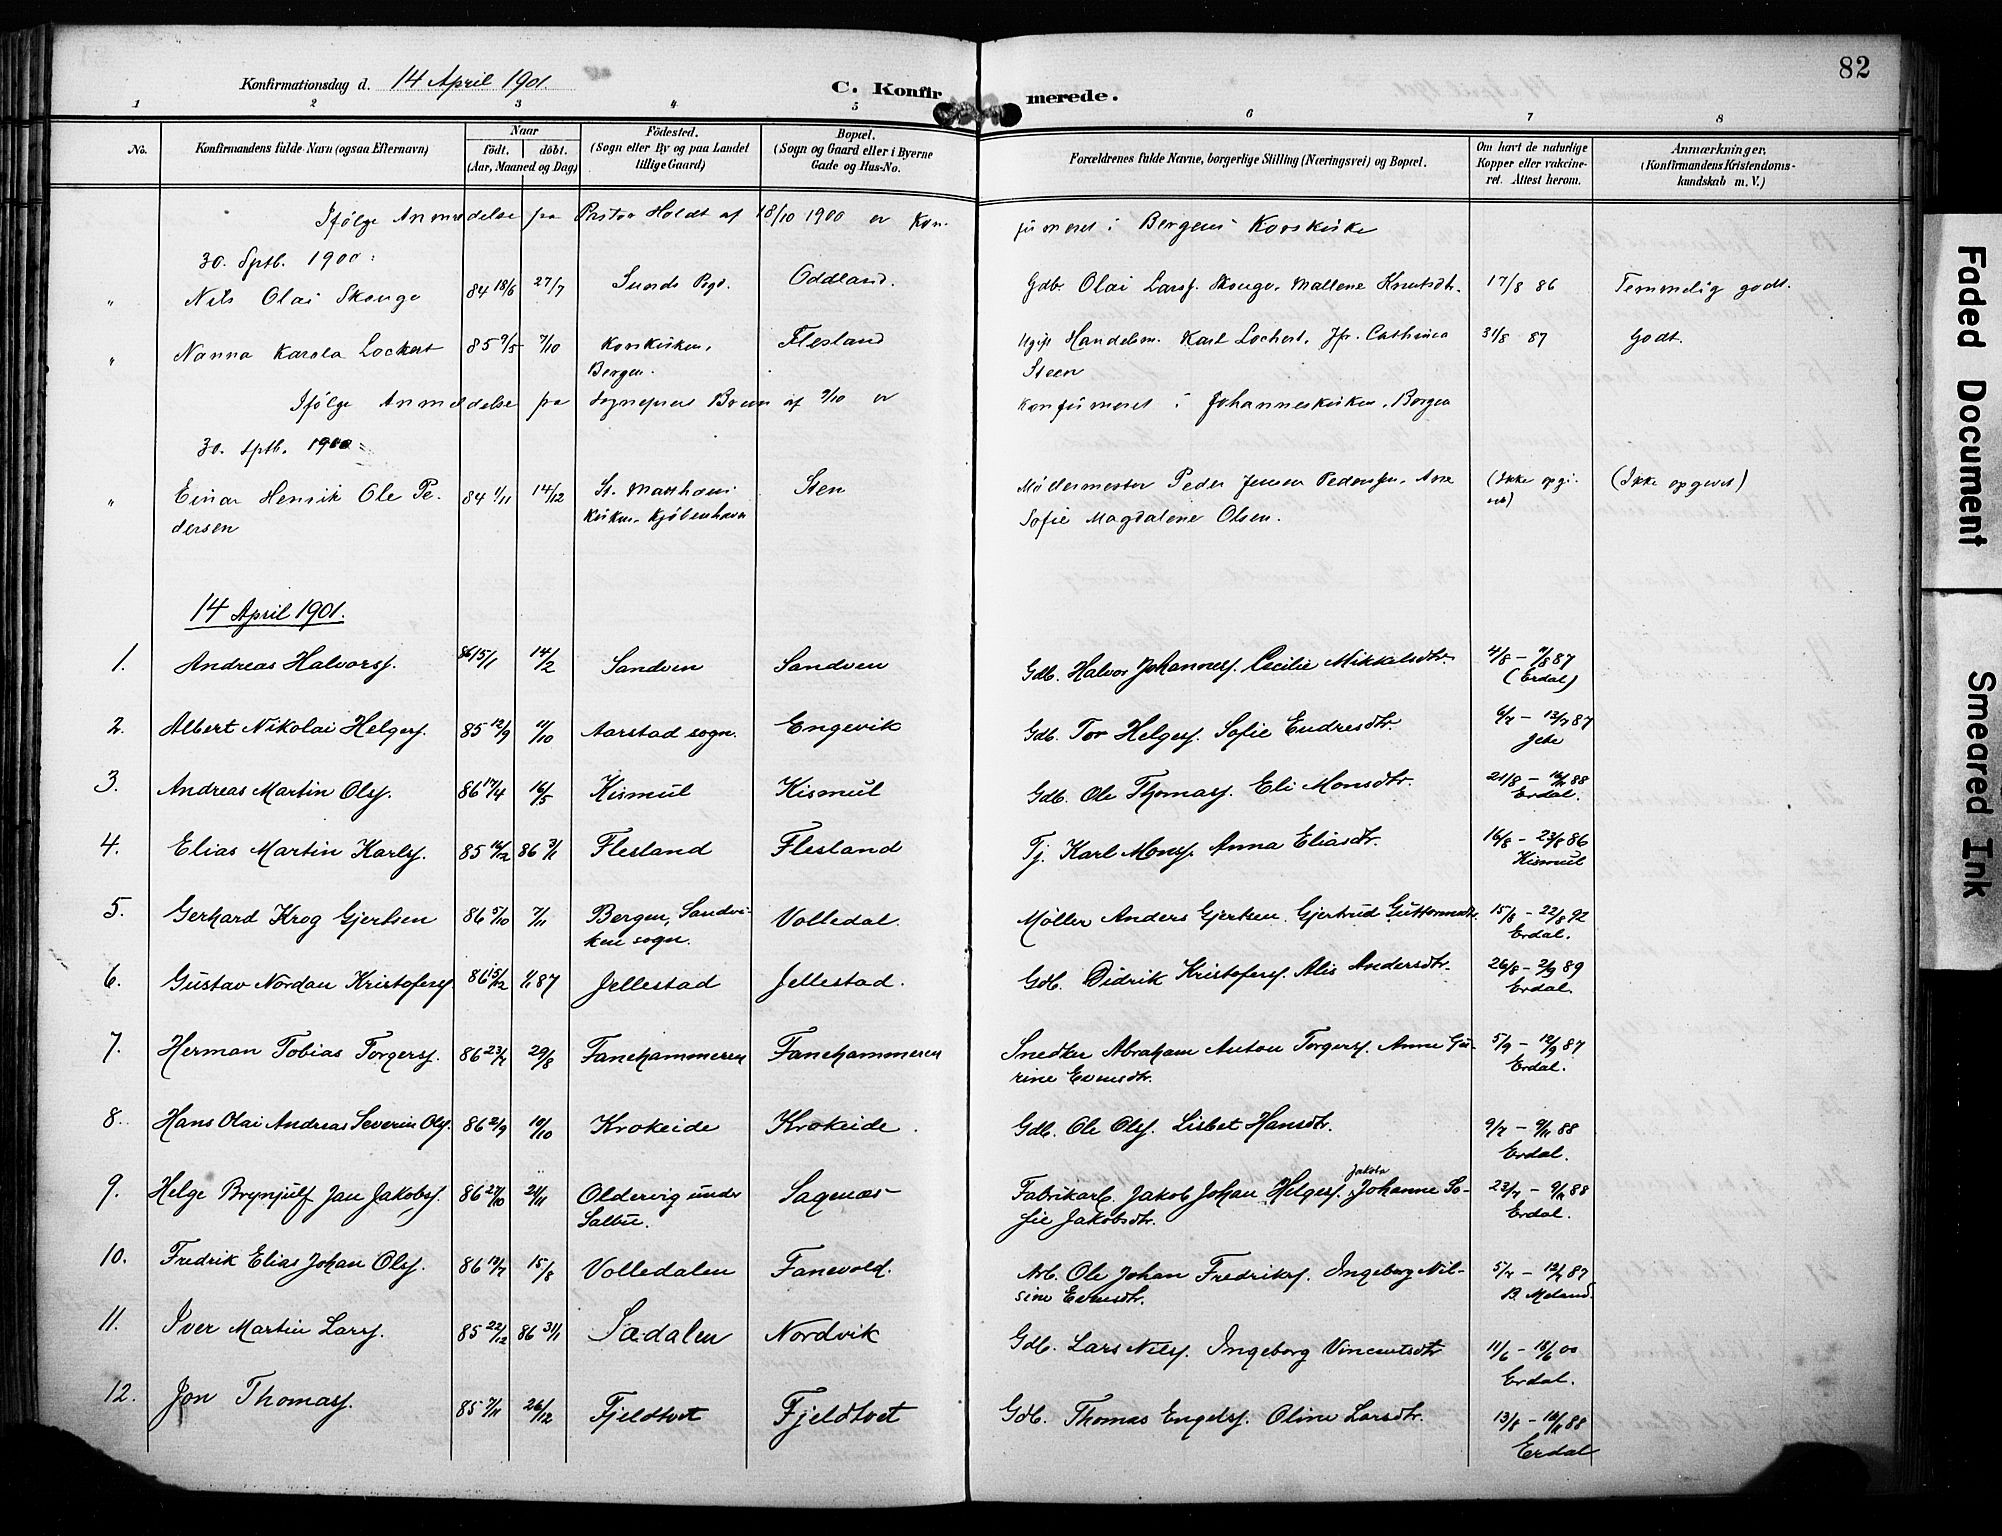 82
Konfirmationsdag d. 14 April 1901.
C. Konfirmerede.
1 2 3 4 5 6 7 8
No. Konfirmandens fulde Navn (ogsaa Efternavn) Naar födt. döbt. (Aar, Maaned og Dag) Födested. (Sogn eller By og paa Landet tillige Gaard) Bopæl. (Sogn og Gaard eller i Byerne Gade og Hus-No. Forældrenes fulde Navne, borgerlige Stilling (Næringsvei) og Bopæl. Om havt de naturlige Kopper eller vakcineret. Attest herom. Anmærkninger. (Konfirmandens Kristendomskundskab m. V.)
Ifölge Anmeldelse fra Pastor Holdt af 18/10 1900 er Konfirmeret i Bergens Korskirke
30. Sptb. 1900:
" Nils Olai Skouge 84 18/6 27/7 Sunds Pgd. Oddland. Gdb. Olai Larss. Skouge, Mallene Knutsdtr. 17/8 86 Temmelig godt.
" Nanna Karola Lockert 85 9/5 7/10 Korskirken, Flesland Ugift Handelsm. Karl Lochert, Jfr. Cathinca 31/8 87 Godt.
Bergen. Steen
Ifölge Anmeldelse fra Sogneprest Bruun af 9/10 er Konfirmeret i Johanneskirken, Bergen
30. Sptb. 1900:
" Einar Henrik Ole Pe- 84 1/11 14/12 St. Matthæus Sten Möllermester Peder Jensen Pedersen, Ane (Ikke opgi-
dersen Kirken, Kjöbenhavn Sofie Magdalene Olsen. vet) (Ikke opgivet)
14 April 1901.
1. Andreas Halvorss. 86 15/1 14/2 Sandven Sandven Gdb. Halvor Johanness. Cecilie Mikkalsdtr. 4/8 - 11/8 87
(Erdal)
2. Albert Nikolai Helgess. 85 12/9 11/10 Aarstad sogn. Engevik Gdb. Tor Helgess. Sofie Endresdtr. 6/7 - 13/7 87
3. Andreas Martin Olss. 86 17/4 16/5 Kismul Kismul Gdb. Ole Thomass. Eli Monsdtr. 21/8 - 88
Erdal.
4. Elias Martin Karlss. 85 86 3/1 Flesland Flesland Tj. Karl Monss. Anna Eliasdtr. 16/8 - 23/8 86
Kismul
5. Gerhard Krog Gjertsen 86 5/10 7/11 Bergen, Sandvi- Volledal. Møller Anders Gjertsen. Gjertrud Guttormsdtr. 15/8 - 22/8 92
ken sogn. Erdal.
6. Gustav Nordan Kristoferss. 86 15/12 1/1 87 Jellestad Jellestad. Gdb. Didrik Kristoferss. Alis Andersdtr. 26/8 - 2/9 89
Erdal.
7. Herman Tobias Torgerss. 86 23/7 29/8 Fanehammeren Fanehammeren Snedker Abraham Anton Torgerss. Anne Gu- 5/9 - 12/9 87
rine Evensdtr. Erdal.
8. Hans Olai Andreas Severin Olss. 86 2/9 10/10 Krokeide Krokeide. Gdb. Ole Olss. Lisbet Hansdtr. 88
Erdal.
9. Helge Brynjulf Jan Jakobss. 86 27/10 21/11 Oldervig under Sagenæs Fabrikarb. Jakob Johan Helgess. Jakoba Johanne So- 88
Salbu. fie Jakobsdtr. Erdal.
10. Fredrik Elias Johan Olss. 86 15/8 Volledalen Fanevold. Arb. Ole Johan Fredrikss. Ingeborg Nil- 5/7 - 12/7 87
sine Evensdtr. B. Meland.
11. Iver Martin Larss. 85 22/12 86 31/1 Sædalen Nordvik Gdb. Lars Nilss. Ingeborg Vincentsdtr 11/6 - 18/6 00
Erdal.
12. Jon Thomass. 85 7/11 26/12 Fjeldtvet Fjeldtvet Gdb. Thomas Engelss. Oline Larsdtr. 13/8 - 88
Erdal
Faded Document
Smeared Ink